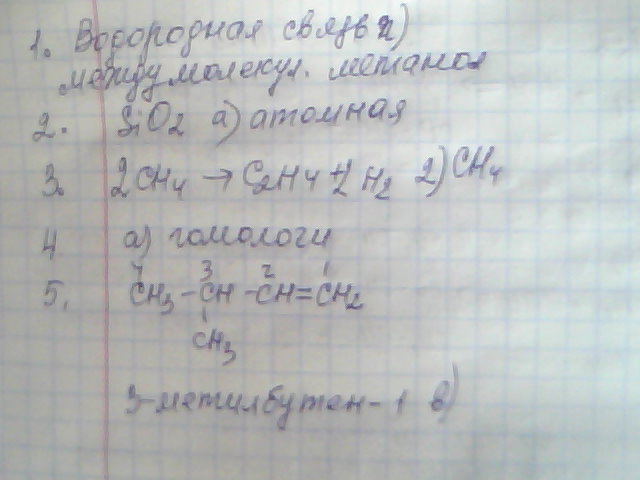 1. Водородная связь г)
между молекул. метанол
2. SiO2 а) атомная
3. 2CH4 → C2H4 + 2H2 2) CH4
4 а) гомологи
4 3 2 1
5. CH3 - CH - CH = CH2
CH3
3-метилбутен-1 в)